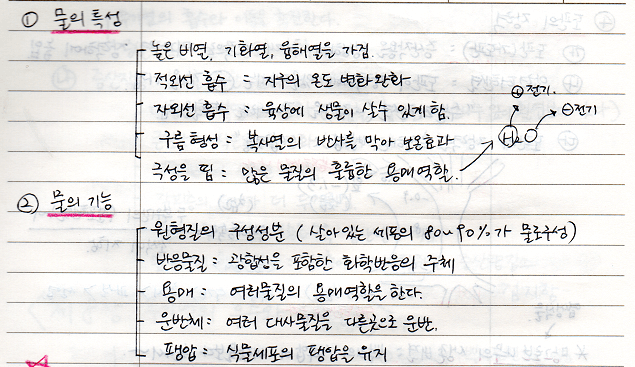 ① 물의 특성
높은 비열, 기화열, 융해열을 가짐.
적외선 흡수 : 지구의 온도 변화완화
자외선 흡수 : 육상에 생물이 살수 있게 함.
구름형성 : 복사열의 반사를 막아 보온효과
극성을 띰 : 많은 물질의 훌륭한 용매역할.
⊕전기.
⊖전기
H₂O
② 물의 기능
원형질의 구성성분 (살아있는 세포의 80~90%가 물로구성)
반응물질 : 광합성을 포함한 화학반응의 주체
용매 : 여러물질의 용매역할을 한다.
운반체 : 여러 대사물질을 다른곳으로 운반.
팽압 : 식물세포의 팽압을 유지